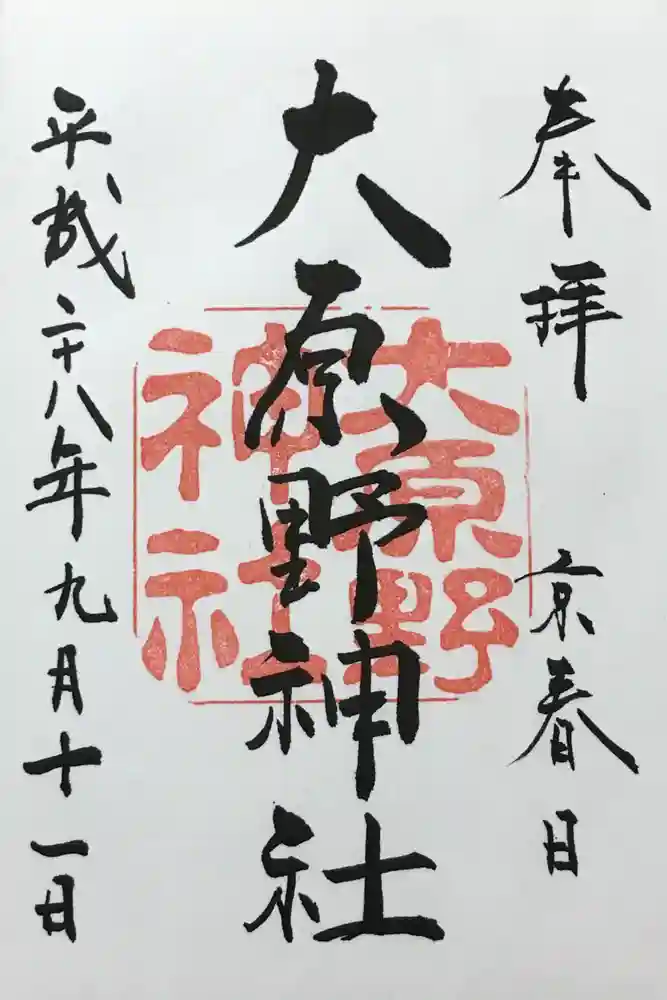 奉拝
京春日
大原野神社
大原野
神社
平成二十八年九月十一日